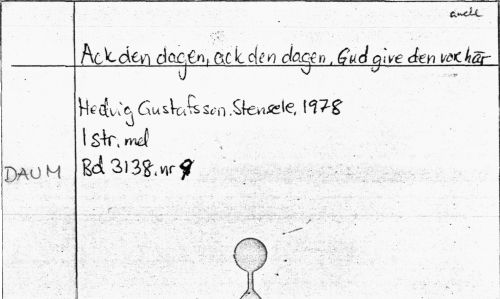 Ack den dagen, ack den dagen, Gud give den vor här
Hedvig Gustafsson. Stensele, 1978
1 str. mel
DAUM Bd 3138, nr 9